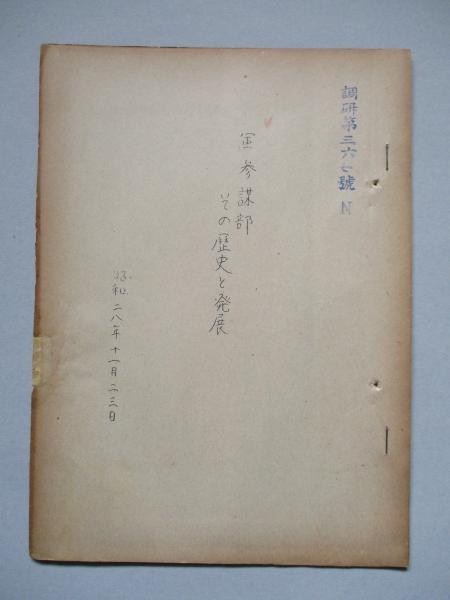 調研第三六七號 N
軍参謀部
その歴史と発展
昭和二八年十一月二三日